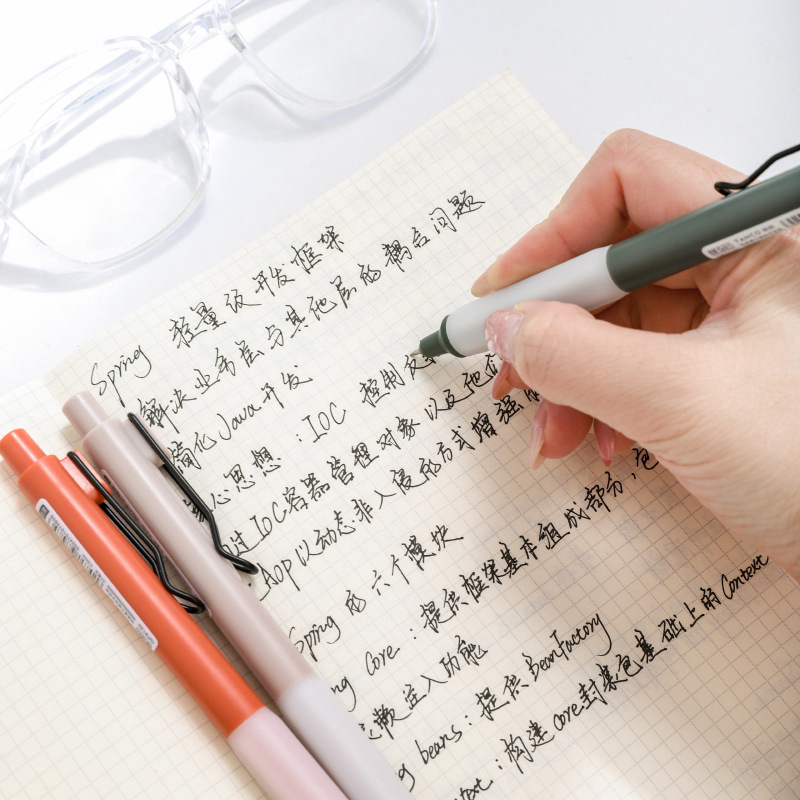 Spring 轻量级开发框架
解决业务层与其他层的耦合问题
简化Java开发
心思想：IOC 控制反
过IOC容器管理对象以及他们
AOP以动态非入侵的方式增强
Spring 的六个模块
Core：提供框架基本组成部分，包
依赖注入功能
beans：提供BeanFactory
text：构建core封装包基础上的Context